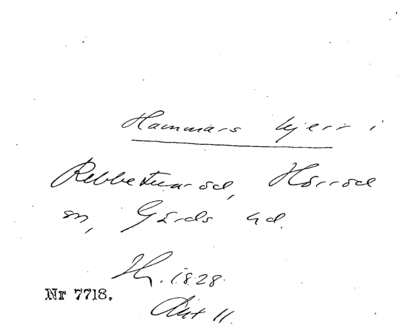 Hammars kjerr i
Rebbetuaröd, Hörröd
sn, Gärds hd.
Hy. 1828.
Nr 7718.
Akt 11.